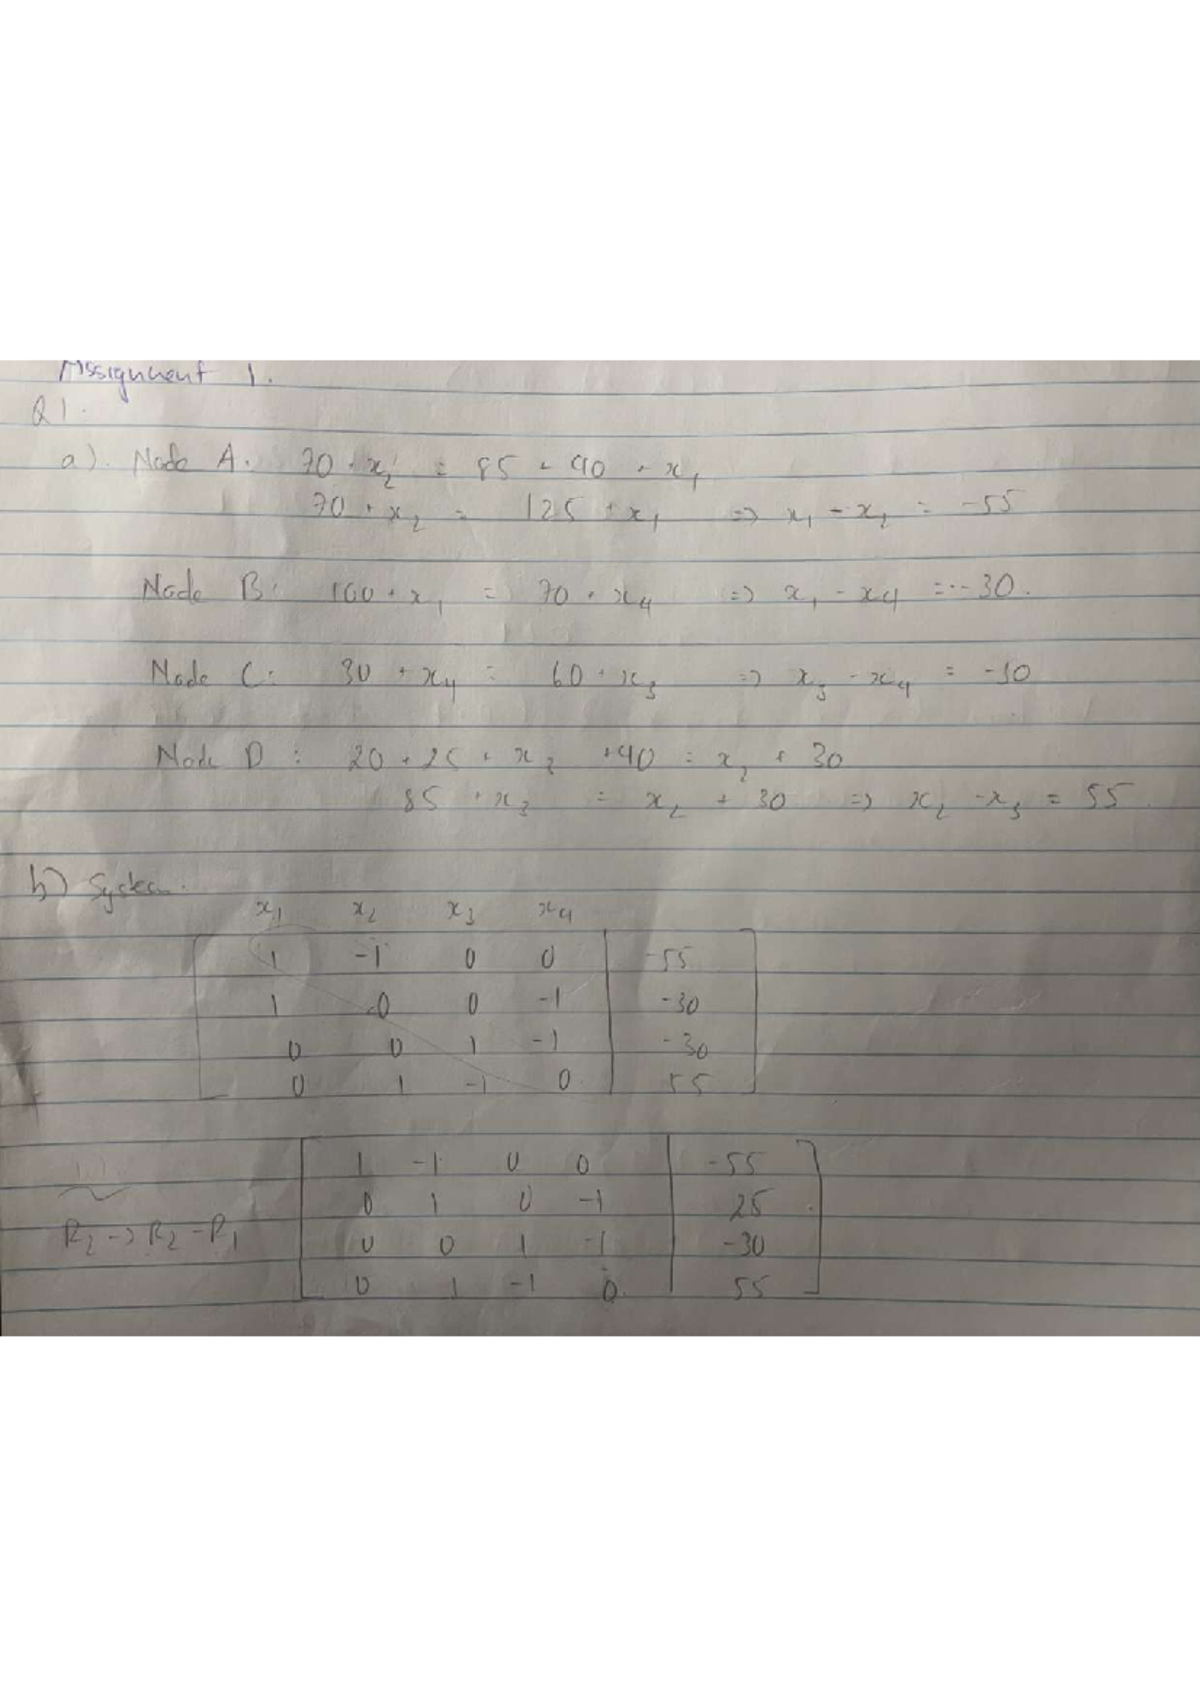 Assignment 1.
Q1.
a). Node A. 70 + x2 = 85 + 40 + x1
70 + x2 = 125 + x1 => x1 - x2 = -55
Node B: 100 + x1 = 70 + x4 => x1 - x4 = -30.
Node C: 30 + x4 = 60 + x3 => x3 - x4 = -30
Node D: 20 + 25 + x3 +40 = x2 + 30
85 + x3 = x2 + 30 => x2 - x3 = 55.
b) System.
x1 x2 x3 x4
1 -1 0 0 -55
1 0 0 -1 -30
0 0 1 -1 -30
0 1 -1 0 55
1 -1 0 0 -55
0 1 0 -1 25
R2 -> R2 - R1 0 0 1 -1 -30
0 1 -1 0 55